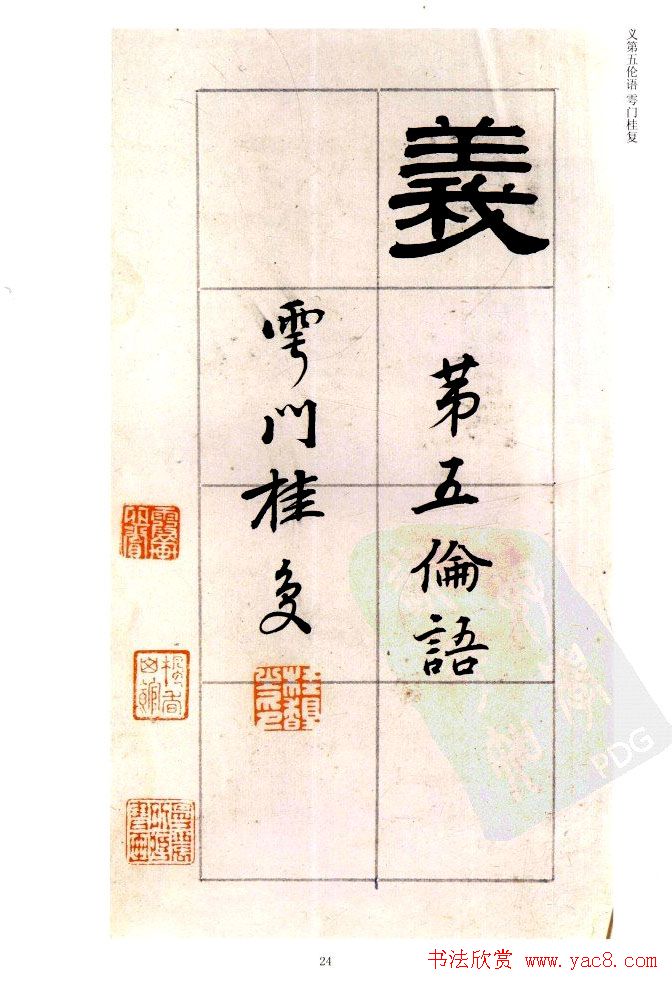 义第五伦语 雩门桂复
義
第五倫語
雩門桂复
24
书法欣赏 www.yac8.com
PDG